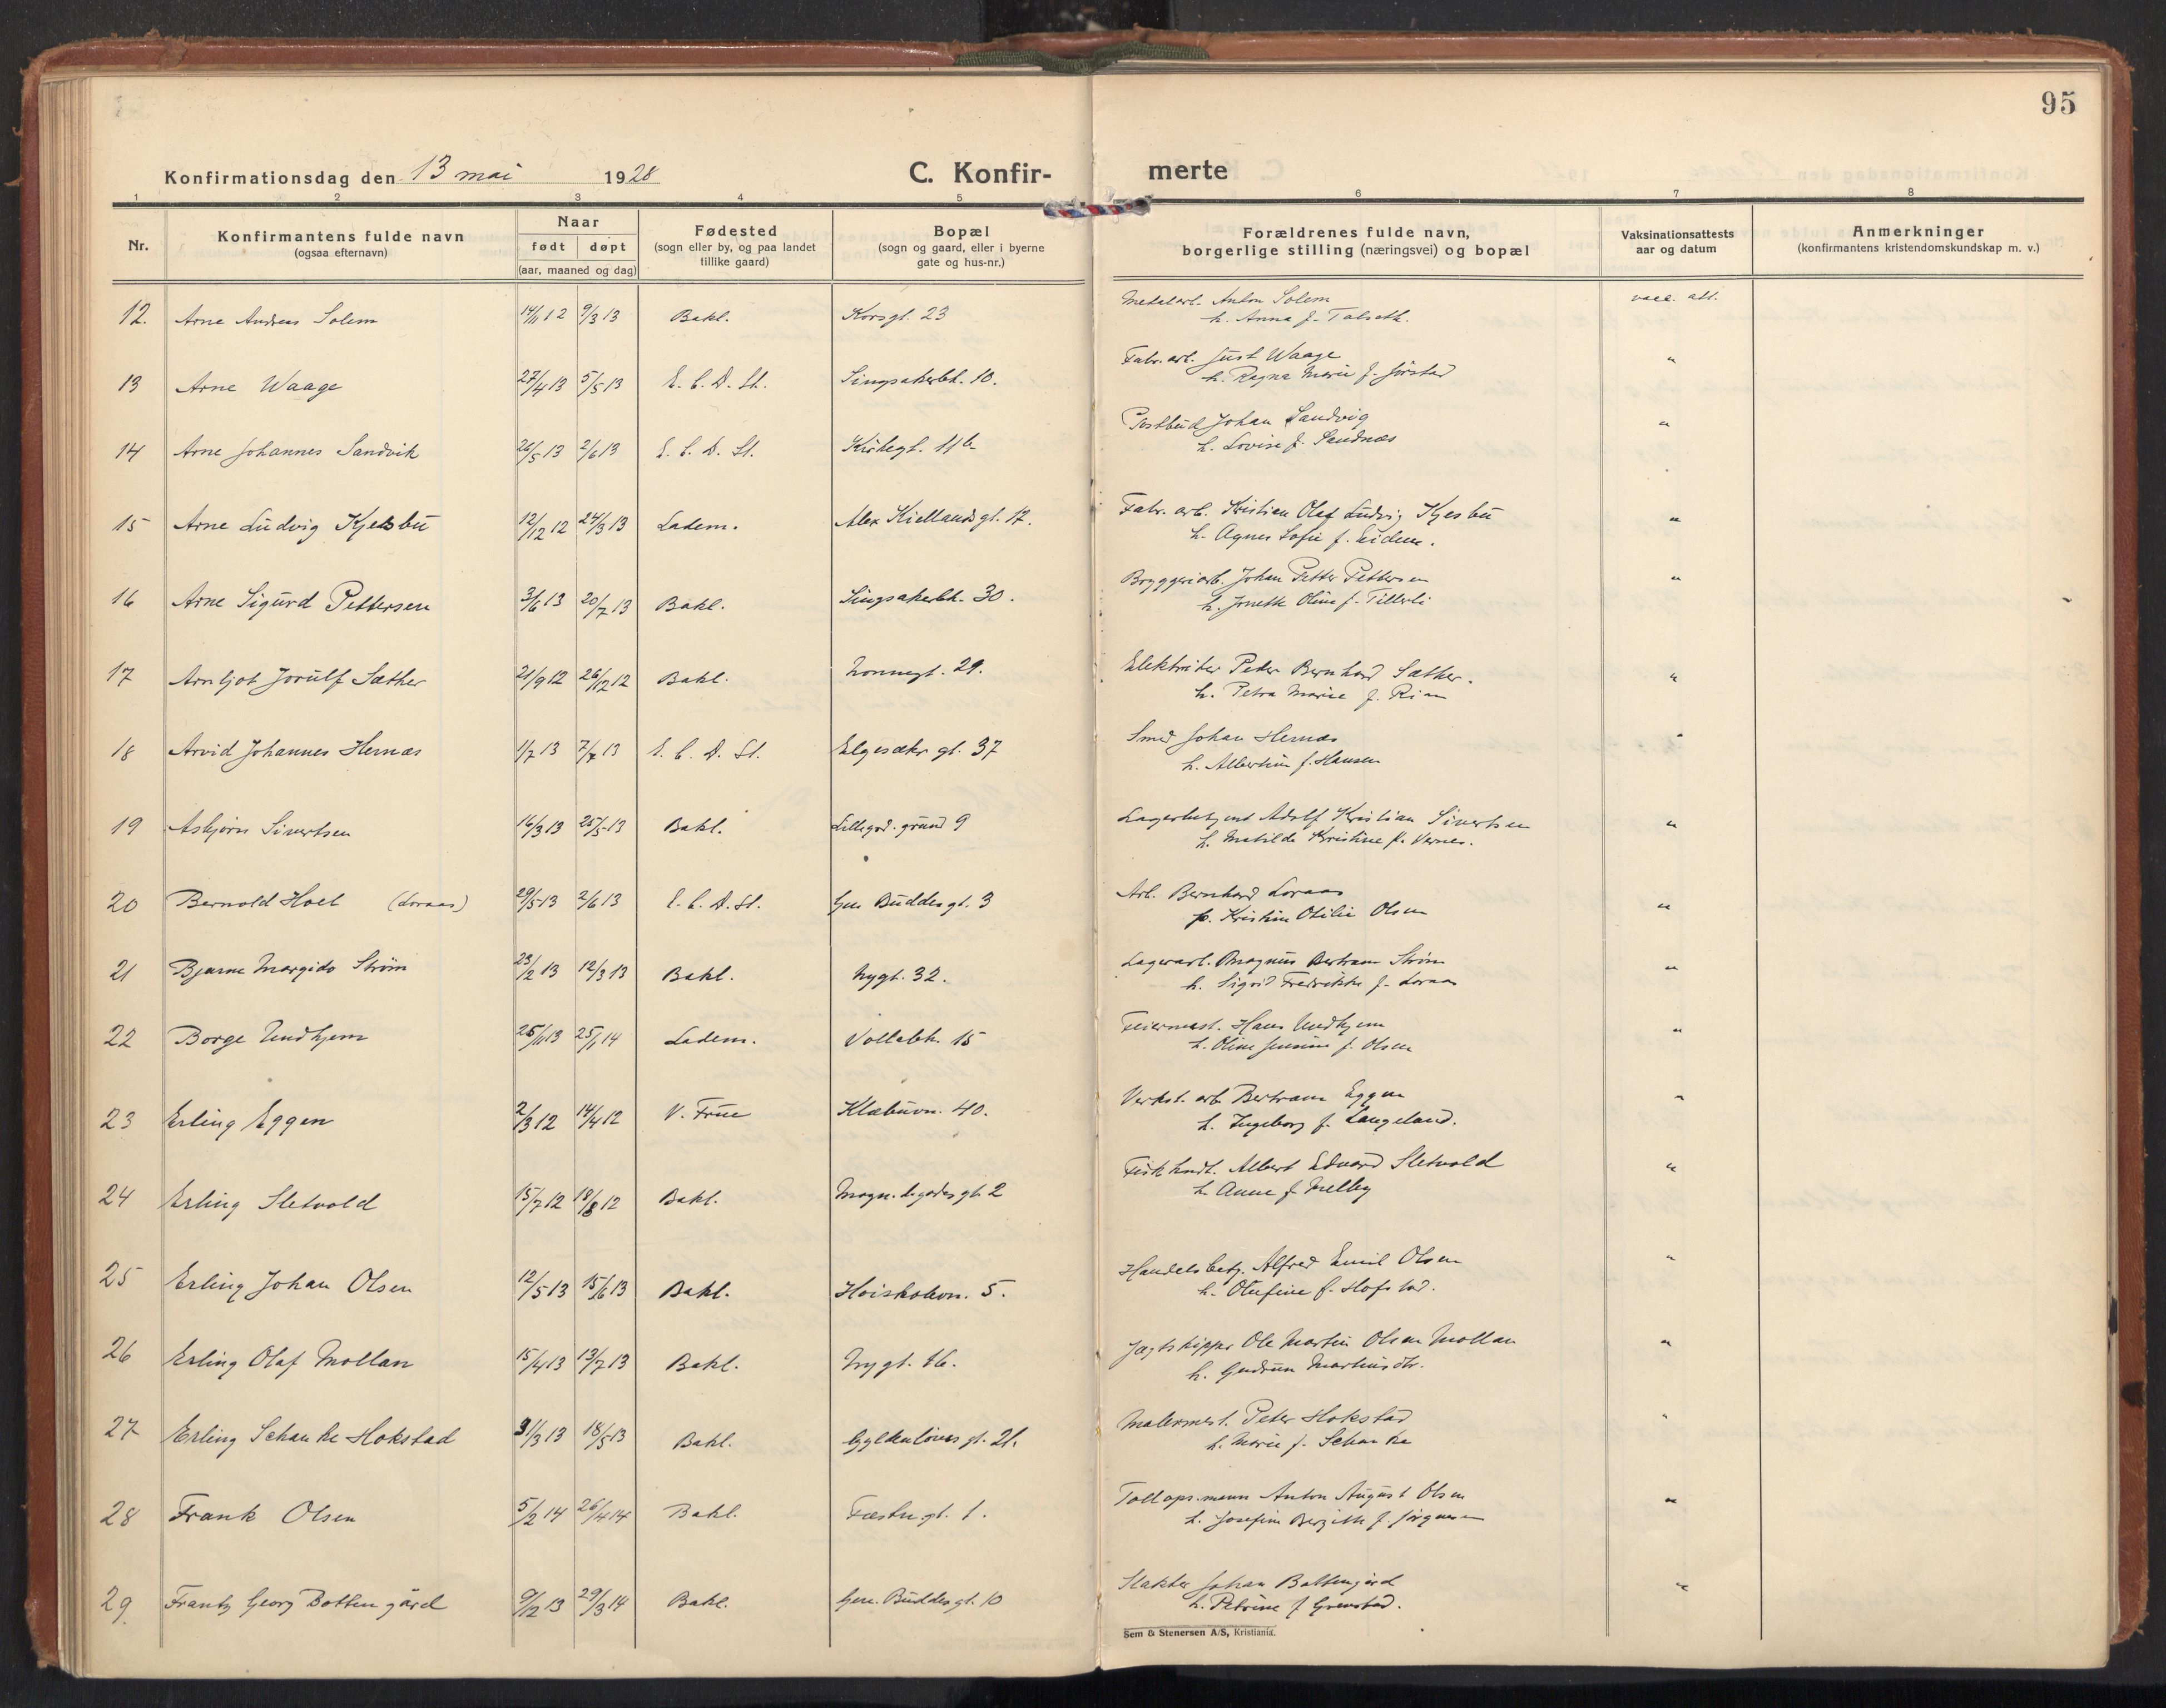 95
Konfirmationsdag den 13 mai 1928 C. Konfir- merte
1 2 3 4 5 6 7 8
Nr. Konfirmantens fulde navn (ogsaa efternavn) Naar født døpt (aar, maaned og dag) Fødested (sogn eller by, og paa landet tillike gaard) Bopæl (sogn og gaard, eller i byerne gate og hus-nr.) Forældrenes fulde navn, borgerlige stilling (næringsvei) og bopæl Vaksinationsattests aar og datum Anmerkninger (konfirmantens kristendomskundskap m. v.)
12. Arne Andreas Solem 14/11 12 9/3 13 Bakl. Korsgt. 23 Metalarb. Anton Solem vacc. att.
h. Anna f. Talseth.
13 Arne Waage 27/4 13 5/5 13 E. C. D. St. Singsakerbk. 10. Fabr. arb. Just Waage "
h. Ragna Marie f. Jørstad
14 Arne Johannes Sandvik 26/5 13 2/6 13 E. C. D. St. Kirkegt. 11b Postbud Johan Sandvig "
h. Lovise f. Sandnes
15 Arne Ludvig Kjelsbu 12/12 12 24/3 13 Ladem. Alex Kiellands gt. 17. Fabr. arb. Kristian Olaf Ludvig Kjesbu "
h. Agnes Sofie f. Eidem.
16 Arne Sigurd Pettersen 3/6 13 20/7 13 Bakl. Singsakerbk. 30. Bryggeriarb. Johan Petter Pettersen "
h. Jonette Oline f. Tillerli
17 Arnljot Jorulf Sæther 21/9 12 26/12 12 Bakl. Nonnegt. 29. Elektriker Peder Bernhard Sæther. "
h. Petra Marie f. Rian
18 Arvid Johannes Hernæs 1/7 13 7/7 13 E. C. D. St. Elgesæter gt. 37 Smed Johan Hernæs "
h. Albertine f. Hansen
19 Asbjørn Sivertsen 16/3 13 25/5 13 Bakl. Lillegård. grund 9 Lagerbetjent Adolf Kristian Sivertsen "
h. Matilde Kristine f. Vernes.
20 Bernold Hoel (Loraas) 29/5 13 2/6 13 E. C. D. St. Gen Buddes gt. 3 Arb. Bernhard Loraas "
p. Kristine Otilie Olsen
21 Bjarne Margido Strøm 23/2 13 12/3 13 Bakl. Nygt. 32. Lagerarb. Magnus Bertram Strøm "
h. Sigrid Fredrikke f. Loraas
22 Borge Undhjem 25/11 13 25/1 14 Ladem. Vollabk. 15 Feiermest. Hans Undhjem "
h. Oline f. Olsen
23 Erling Eggen 2/3 12 14/4 12 V. Frue Klæbuvn. 40. Verkst. arb. Bertram Eggen "
h. Ingeborg f. Langeland.
24 Erling Sletvold 15/7 12 18/8 12 Bakl. Magn. d. godes gt. 2 Fiskhndl. Albert Edvard Sletvold "
h. Anne f. Melby
25 Erling Johan Olsen 12/5 13 15/6 13 Bakl. Høiskolevn. 5. Handelsbetj. Alfred Emil Olsen "
h. Olufine f. Hofstad.
26 Erling Olaf Mollan 15/4 13 13/7 13 Bakl. Nygt. 16. Jagtskipper Ole Martin Olsen Mollan "
h. Gudrun Martinsdtr.
27 Erling Schanke Hokstad 31/3 13 18/5 13 Bakl. Gyldenløves gt. 21. Malermest. Peter Hokstad "
h. Marie f. Schanke
28 Frank Olsen 5/2 14 26/4 14 Bakl. Fæstn.gt. 1. Tollops.mann Anton August Olsen "
h. Josefine Bergitte f. Jørgensen
29. Frantz Georg Bottengård 9/12 13 29/3 14 Bakl. Gen. Buddes gt. 10 Slakter Johan Bottengård "
h. Petrine f. Grenstad.
Sem & Stenersen A/S, Kristiania.